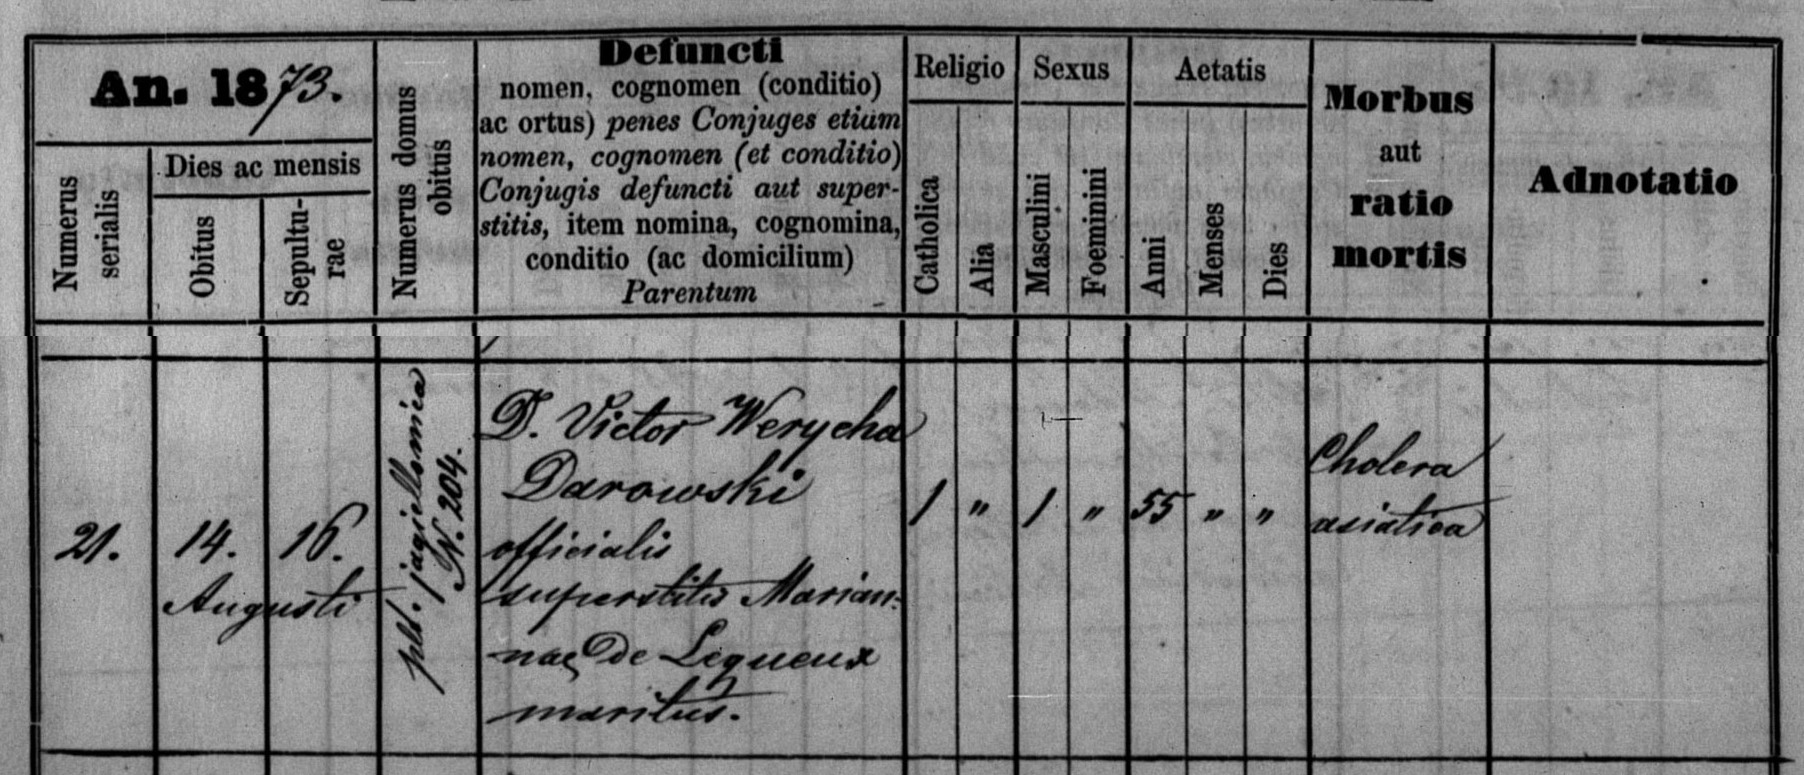 An. 1873.
Numerus serialis
Dies ac mensis
Obitus
Sepultu-
rae
Numerus domus
obitus
Defuncti
nomen, cognomen (conditio)
ac ortus) penes Conjuges etiam
nomen, cognomen (et conditio)
Conjugis defuncti aut super-
stitis, item nomina, cognomina,
conditio (ac domicilium)
Parentum
Religio
Catholica
Alia
Sexus
Masculini
Foeminini
Aetatis
Anni
Menses
Dies
Morbus
aut
ratio
mortis
Adnotatio
21.
14. 16.
Augusti
jagiellonica
N. 204.
D. Victor Werycha
Darowski
officialis
superstitis Marian-
nae De Lequeux
maritus.
1 " 1 " 55 " "
Cholera
asiatica